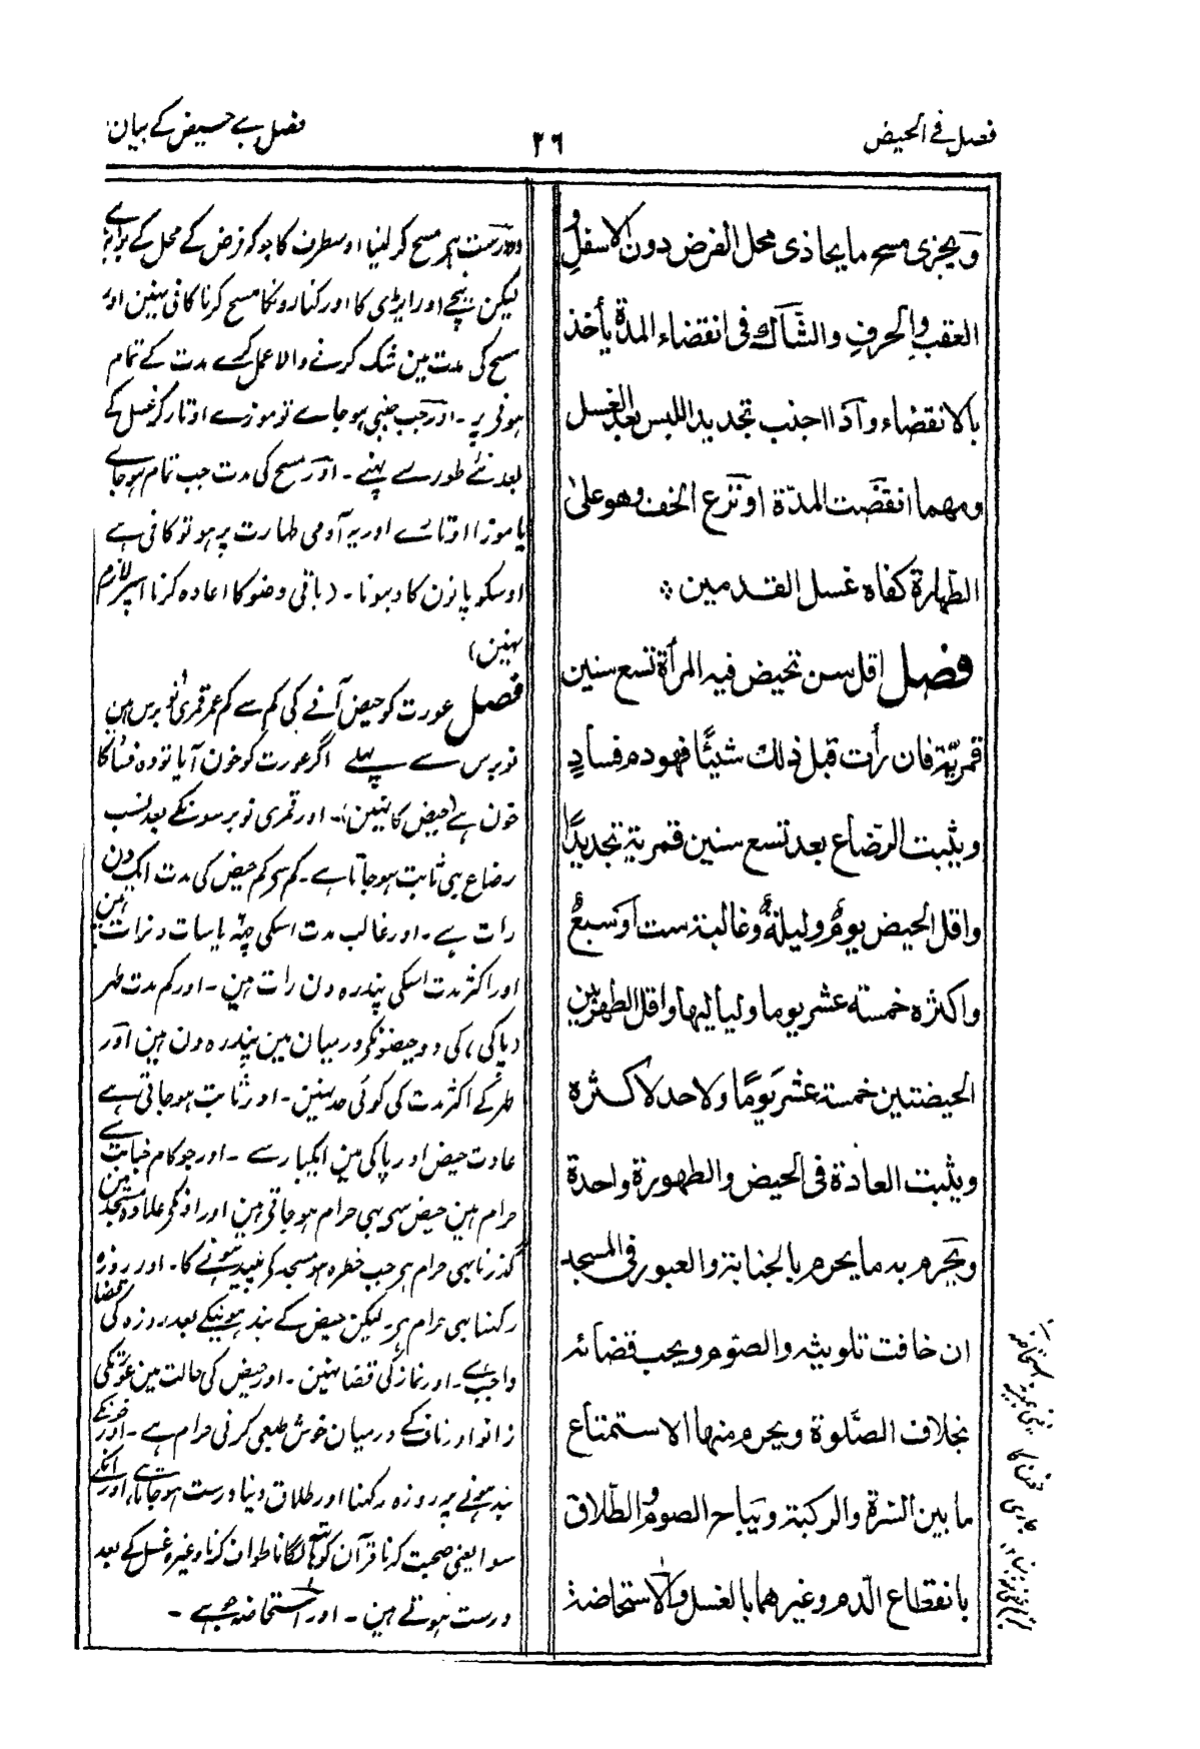 فصل فے الحیض
٢٦
فصل ہے حیض کے بیان
ويجزى مسح ما يحاذى محل الفرض دون الاسفل و
العقب والحرف والشاك فى انقضاء المدة يأخذ
بالانقضاء وآذا اجنب تجديد اللبس بعد الغسل
ومهما انقضت المدّة او نزع الخف وهو على
الطهارة كفاه غسل القدمين ؞
فصل اقل سن تحيض فيه المرأة تسع سنين
قمريّة فان رأت قبل ذلك شيئًا فهو دم فسادٍ
ويثبت الرّضاع بعد تسع سنين قمرية تحديدًا
واقل الحيض يومٌ وليلةٌ وغالبة ست او سبعٌ
واكثره خمسته عشر يوما ولياليها واقل الطهر بين
الحيضتين خمستة عشر يومًا ولا حد لاكثره
ويثبت العادة فى الحيض والطهور مرة واحدة
ويحرم به ما يحرم بالجنابة والعبور فى المسجد
ان خافت تلويثه والصوم ويجب قضائه
بخلاف الصّلوة ويحرم منها الاستمتاع
ما بين السّرة والركبة ويباح الصوم والطّلاق
بانقطاع الدّم وغيرهما بالغسل والاستحاضة
درست ہی مسح کر لینا اوسطرف کا جو کہ فرض کے محل کے برابر ہے
لیکن نیچے اور ایڑی کا اور کنارونکا مسح کرنا کافی نہین اور
مسح کی مدت مین شک کرنے والا عمل کرے مدت کے تمام
ہونی پر ۔ اور جب جنبی ہو جاے تو موزے اوتار کر غسل کے
بعد نئے طور سے پہنے ۔ اور مسح کی مدت جب تمام ہو جاے
یا موزا اوتارے اور یہ آدمی طہارت پر ہو تو کافی ہے
اوسکو پانون کا دہونا ۔ (باقی وضو کا اعادہ کرنا اسپر لازم
نہین)
فصل عورت کو حیض آنے کی کم سے کم عمر قمری نو برس ہین
نو برس سے پہلے اگر عورت کو خون آیا تو وہ فساد کا
خون ہے (حیض کا نہین) ۔ اور قمری نو برسونکے بعد نسب
رضاع بہی ثابت ہو جاتا ہے ۔ کم سی کم حیض کی مدت ایک دن
رات ہے ۔ اور غالب مدت اسکی چہہ یا سات دنرات ہین
اور اکثر مدت اسکی پندرہ دن رات ہین ۔ اور کم مدت طہر
(پاکی) کی دو حیضونکی درمیان مین پندرہ دن ہین اور
طہر کے اکثر مدت کی کوئی حد نہین ۔ اور ثابت ہو جاتی ہے
عادت حیض اور پاکی مین ایکبار سے ۔ اور جو کام جنابت سے
حرام ہین حیض سی بہی حرام ہو جاتی ہین اور اونکی علاوہ مسجد مین
گذرنا بہی حرام ہی جب خطرہ ہو مسجد کو پلید ہونے کا ۔ اور روزہ
رکہنا بہی حرام ہی ۔ لیکن حیض کے بند ہونیکے بعد روزہ کی قضا
واجب ہے ۔ اور نماز کی قضا نہین ۔ اور حیض کی حالت مین عورتکی
زانو اور ناف کے درمیان خوش طبعی کرنی حرام ہے ۔ اور خونکے
بند ہونے پر روزہ رکہنا اور طلاق دینا درست ہو جاتا ہے اور انکے
سوا یعنی صحبت کرنا قرآن کو ہاتہہ لگانا طواف کرنا وغیرہ غسل کے بعد
درست ہوتے ہین ۔ اور استحاضہ جو ہے ۔